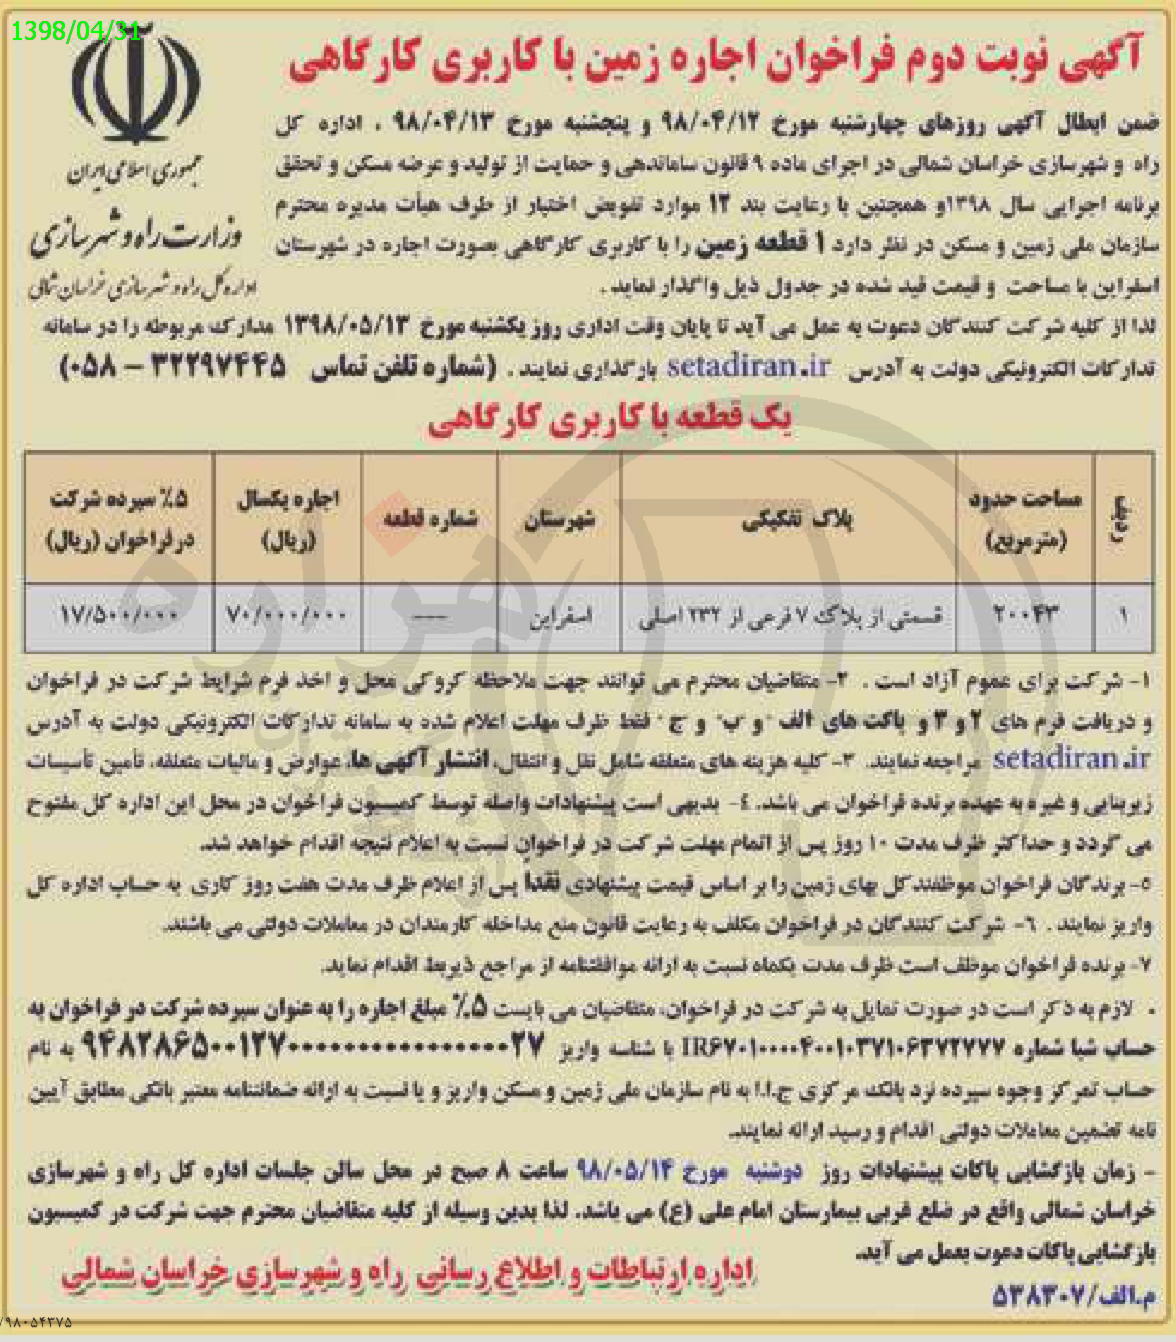 1398/04/31
جمهوری اسلامی ایران
وزارت راه و شهرسازی
اداره کل راه و شهرسازی خراسان شمالی
آگهی نوبت دوم فراخوان اجاره زمین با کاربری کارگاهی
ضمن ابطال آگهی روزهای چهارشنبه مورخ ۹۸/۰۴/۱۲ و پنجشنبه مورخ ۹۸/۰۴/۱۳ ، اداره کل
راه و شهرسازی خراسان شمالی در اجرای ماده ۹ قانون ساماندهی و حمایت از تولید و عرضه مسکن و تحقق
برنامه اجرایی سال ۱۳۹۸و همچنین با رعایت بند ۱۲ موارد تفویض اختیار از طرف هیأت مدیره محترم
سازمان ملی زمین و مسکن در نظر دارد ۱ قطعه زمین را با کاربری کارگاهی بصورت اجاره در شهرستان
اسفراین با مساحت و قیمت قید شده در جدول ذیل واگذار نماید .
لذا از کلیه شرکت کنندگان دعوت به عمل می آید تا پایان وقت اداری روز یکشنبه مورخ ۱۳۹۸/۰۵/۱۳ مدارک مربوطه را در سامانه
تدارکات الکترونیکی دولت به آدرس setadiran.ir بارگذاری نمایند . (شماره تلفن تماس ۳۲۲۹۷۴۴۵ – ۰۵۸)
یک قطعه با کاربری کارگاهی
ردیف | مساحت حدود (مترمربع) | پلاک تفکیکی | شهرستان | شماره قطعه | اجاره یکسال (ریال) | ۵٪ سپرده شرکت در فراخوان (ریال)
۱ | ۲۰۰۴۳ | قسمتی از پلاک ۷ فرعی از ۲۳۲ اصلی | اسفراین | ---- | ۷۰/۰۰۰/۰۰۰ | ۱۷/۵۰۰/۰۰۰
۱- شرکت برای عموم آزاد است . ۲- متقاضیان محترم می توانند جهت ملاحظه کروکی محل و اخذ فرم شرایط شرکت در فراخوان
و دریافت فرم های ۲ و ۳ و پاکت های "الف" و "ب" و "ج" فقط ظرف مهلت اعلام شده به سامانه تدارکات الکترونیکی دولت به آدرس
setadiran.ir مراجعه نمایند. ۳- کلیه هزینه های متعلقه شامل نقل و انتقال، انتشار آگهی ها، عوارض و مالیات متعلقه، تأمین تأسیسات
زیربنایی و غیره به عهده برنده فراخوان می باشد. ۴- بدیهی است پیشنهادات واصله توسط کمیسیون فراخوان در محل این اداره کل مفتوح
می گردد و حداکثر ظرف مدت ۱۰ روز پس از اتمام مهلت شرکت در فراخوان نسبت به اعلام نتیجه اقدام خواهد شد.
۵- برندگان فراخوان موظفند کل بهای زمین را بر اساس قیمت پیشنهادی نقدا پس از اعلام ظرف مدت هفت روز کاری به حساب اداره کل
واریز نمایند . ۶- شرکت کنندگان در فراخوان مکلف به رعایت قانون منع مداخله کارمندان در معاملات دولتی می باشند.
۷- برنده فراخوان موظف است ظرف مدت یکماه نسبت به ارائه موافقتنامه از مراجع ذیربط اقدام نماید.
• لازم به ذکر است در صورت تمایل به شرکت در فراخوان، متقاضیان می بایست ۵٪ مبلغ اجاره را به عنوان سپرده شرکت در فراخوان به
حساب شبا شماره با شناسه واریز به نام
حساب تمرکز وجوه سپرده نزد بانک مرکزی ج.ا.ا به نام سازمان ملی زمین و مسکن واریز و یا نسبت به ارائه ضمانتنامه معتبر بانکی مطابق آیین
نامه تضمین معاملات دولتی اقدام و رسید ارائه نمایند.
- زمان بازگشایی پاکات پیشنهادات روز دوشنبه مورخ ۹۸/۰۵/۱۴ ساعت ۸ صبح در محل سالن جلسات اداره کل راه و شهرسازی
خراسان شمالی واقع در ضلع غربی بیمارستان امام علی (ع) می باشد. لذا بدین وسیله از کلیه متقاضیان محترم جهت شرکت در کمیسیون
بازگشایی پاکات دعوت بعمل می آید.
م.الف/۵۳۸۳۰۷
اداره ارتباطات و اطلاع رسانی راه و شهرسازی خراسان شمالی
/۹۸۰۵۴۳۷۵
هزاره